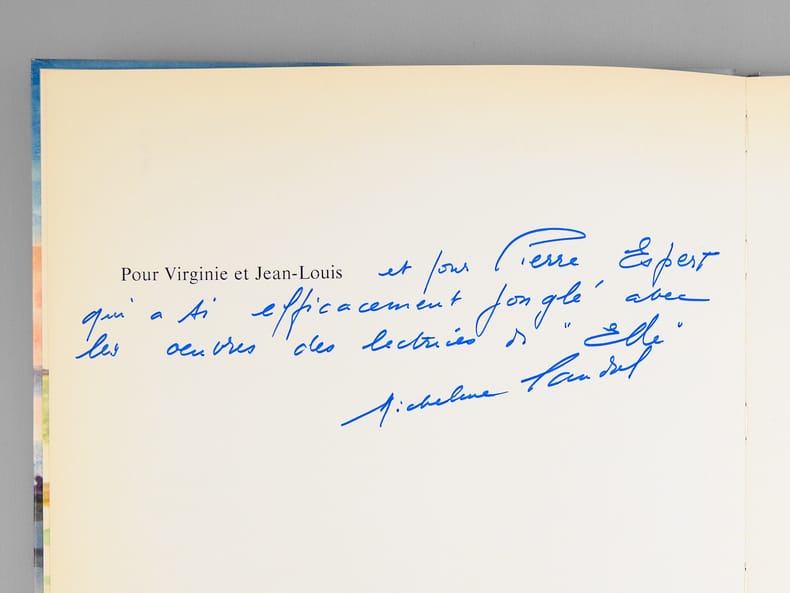 Pour Virginie et Jean-Louis et pour Pierre Espert
qui a si efficacement jonglé avec
les oeuvres des lectrices de "Elle"
Micheline